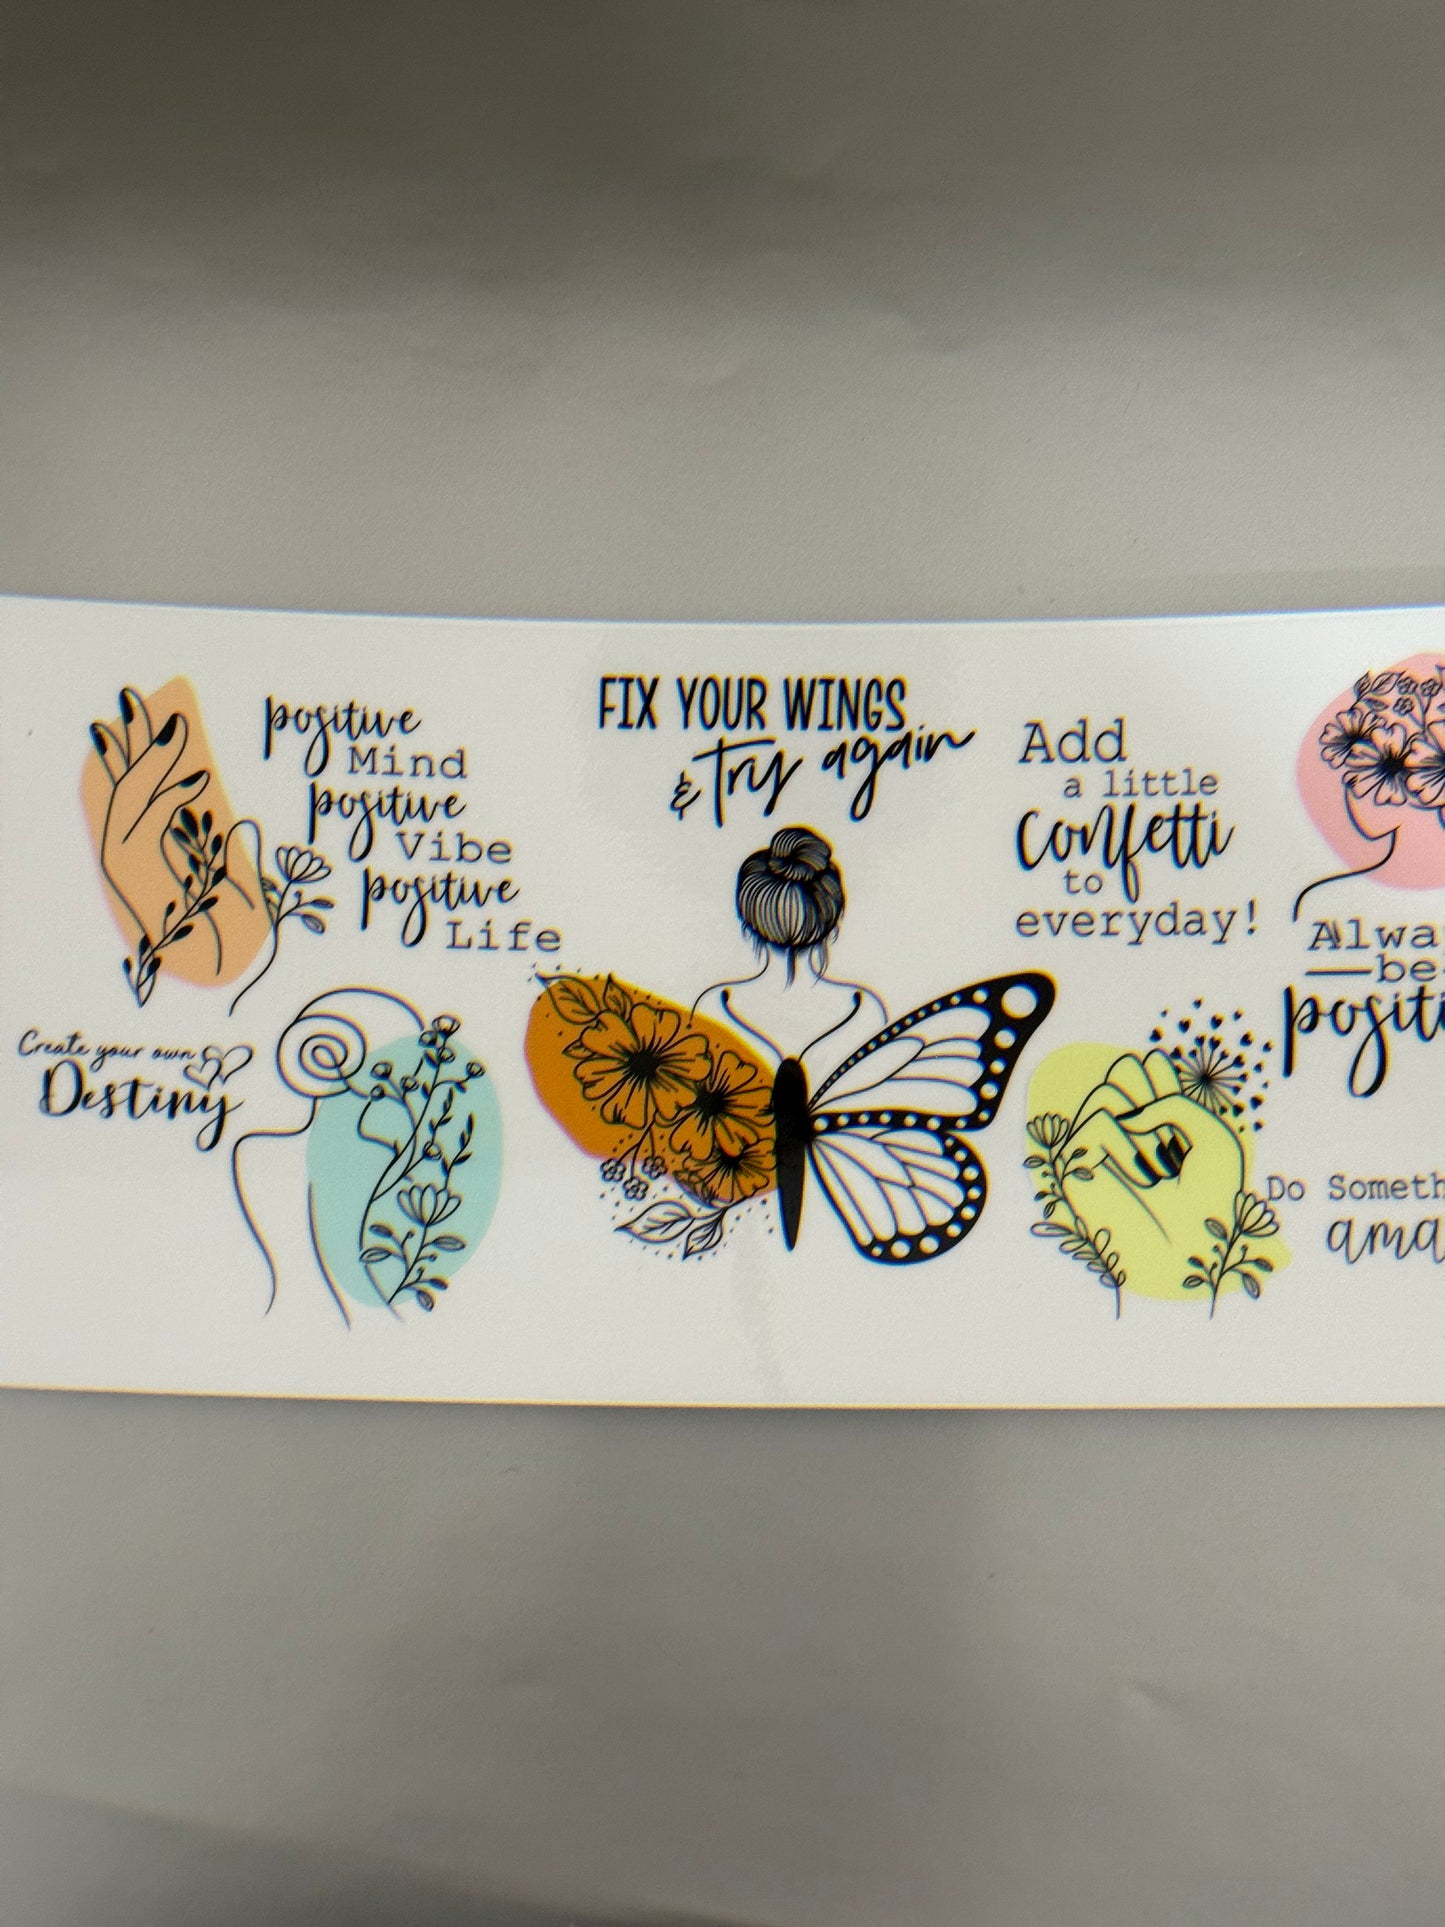 positive
Mind
positive
Vibe
positive
Life
Create your own
Destiny
FIX YOUR WINGS
& try again
Add
a little
confetti
to
everyday!
Alwa
be
positi
Do Someth
ama